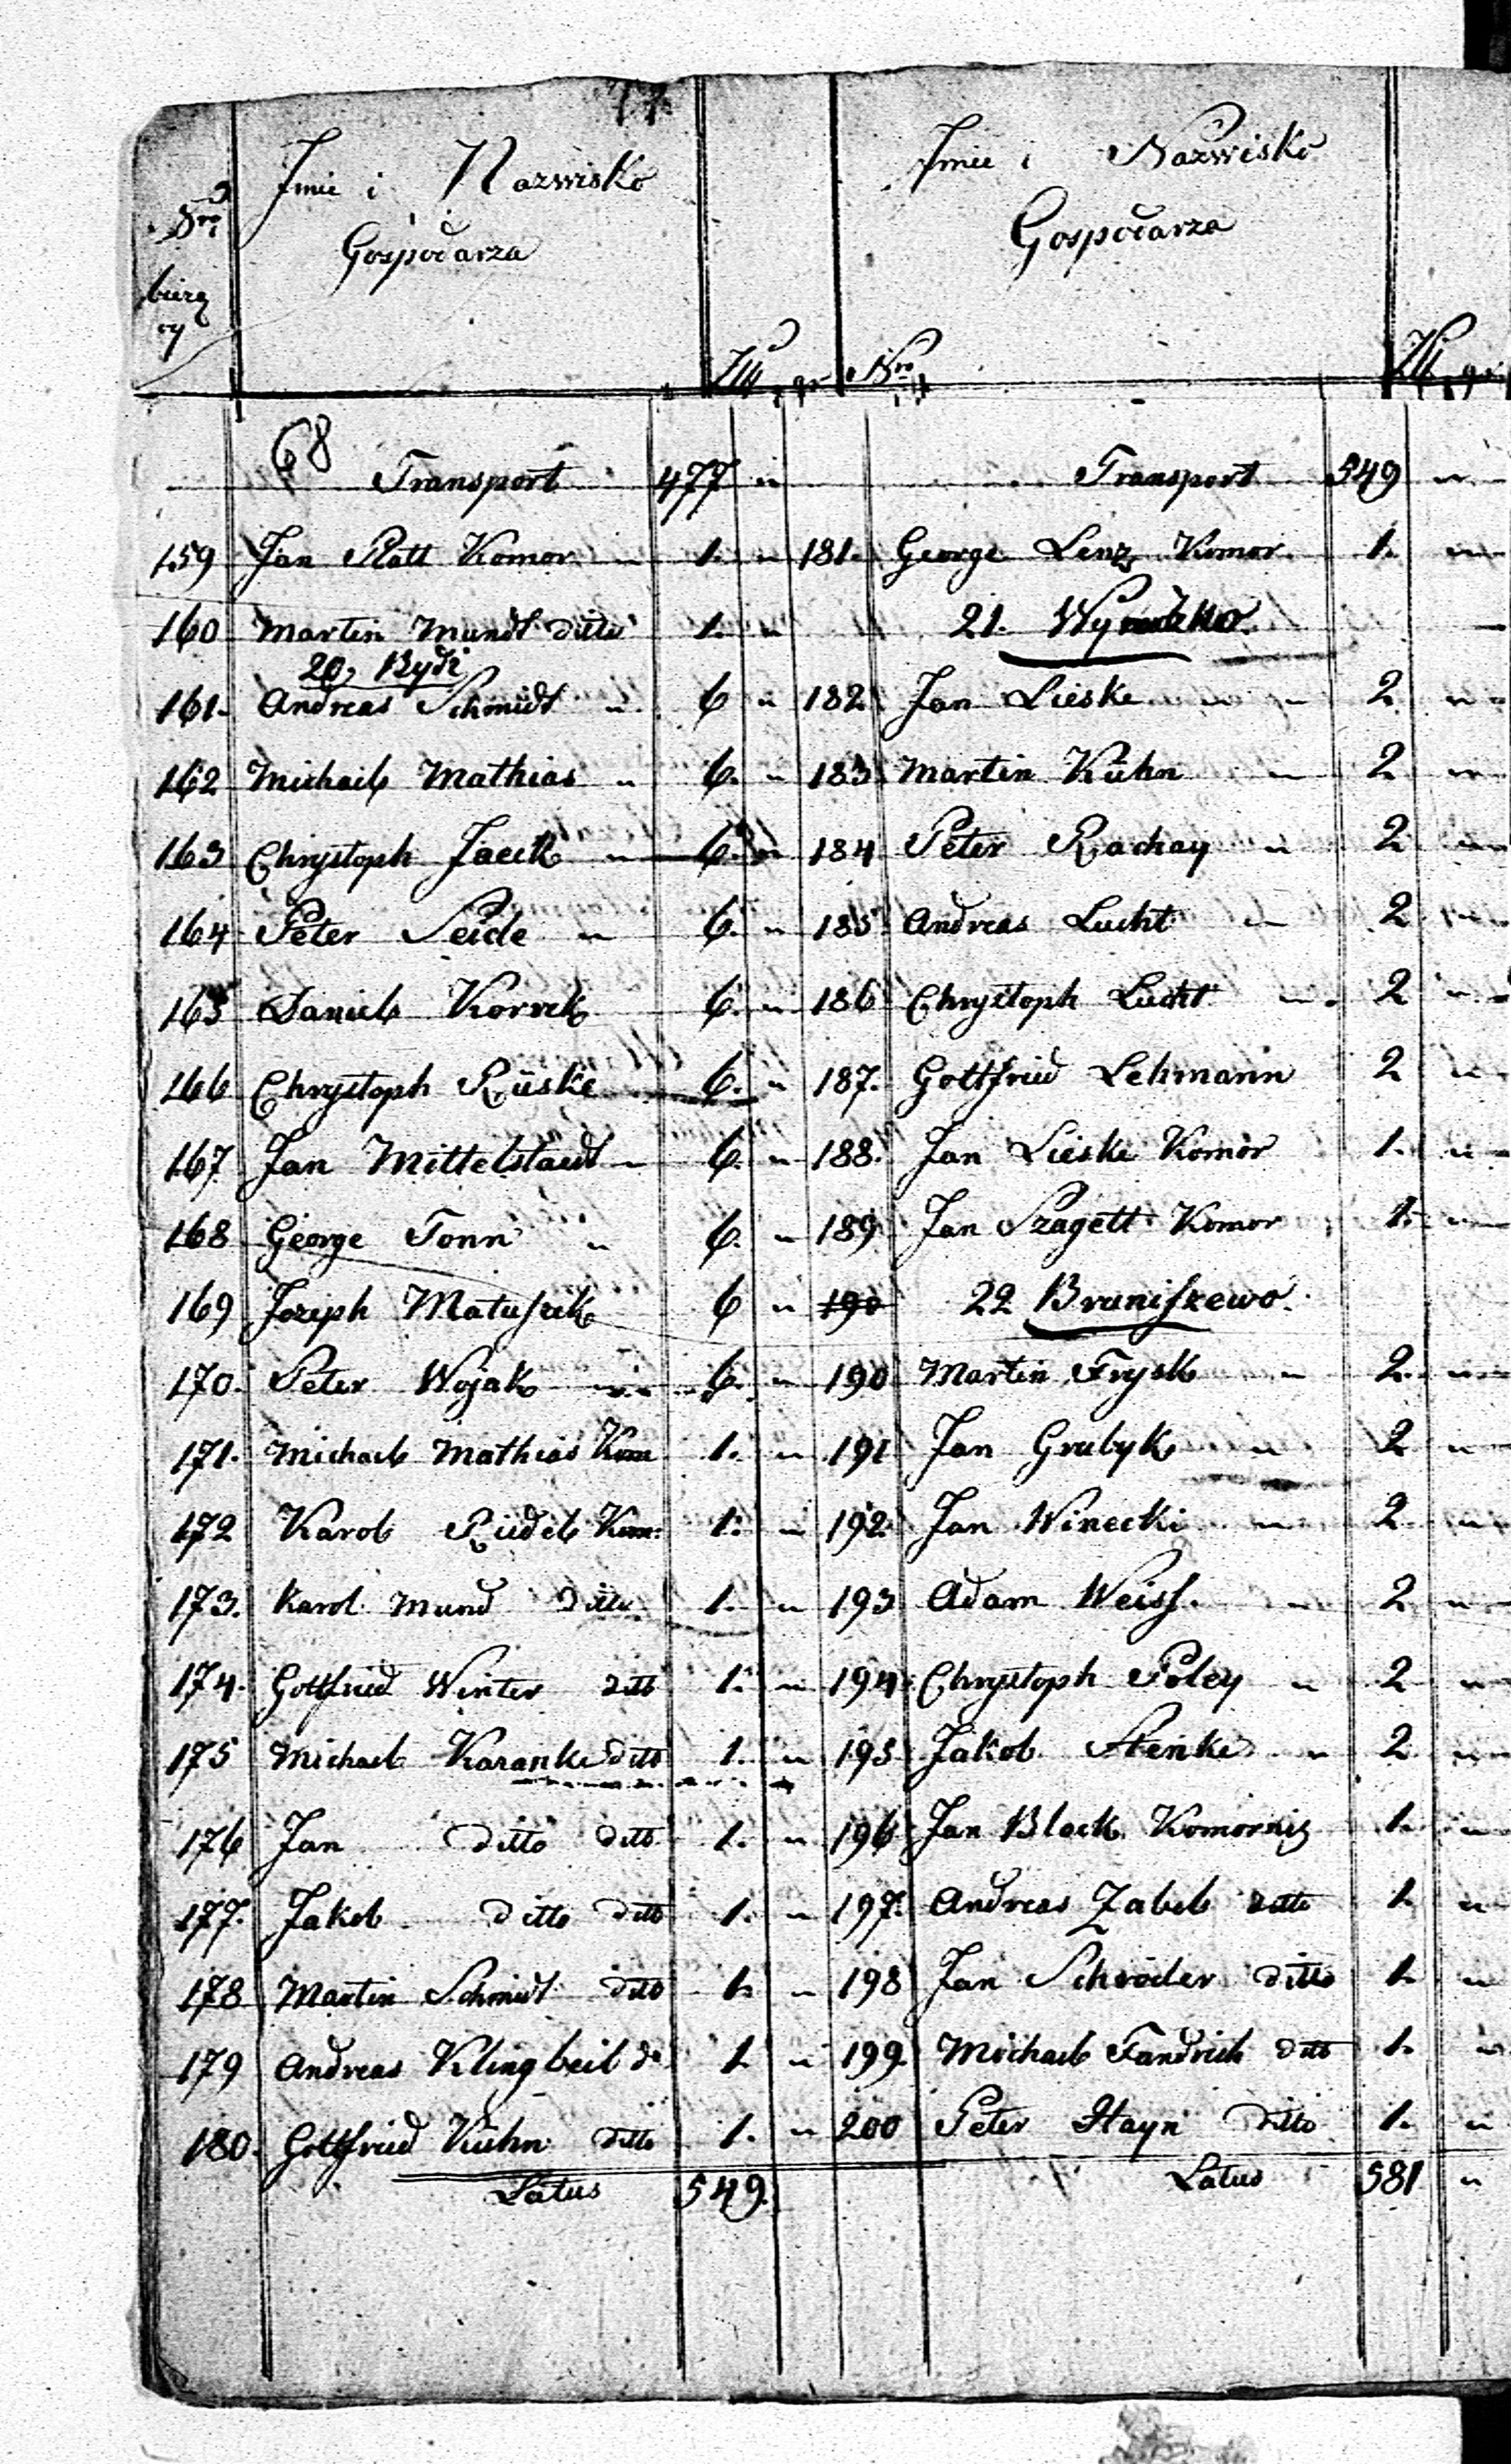 Nro
bieżą
cy
Jmie i Nazwisko
Gospodarza
Złł gr
68
Transport 477 "
159 Jan Platt Komor " 1. "
160 Martin Mundt ditto 1. "
20, Rydz
161. Andreas Schmidt " 6 "
162 Michael Mathias " 6. "
163 Chrystoph Jaeck " 6. "
164 Peter Seide " 6. "
165 Daniel Korreck 6. "
166 Chrystoph Rüske 6. "
167. Jan Mittelstaedt " 6. "
168 George Tonn " 6. "
169 Joseph Matuszek 6 "
170. Peter Wojak " 6. "
171. Michael Mathias Kom 1. "
172 Karol Riedel Kom: 1. "
173. Karol Mund ditto 1. "
174. Gottfried Winter ditto 1. "
175 Michael Karanke ditto 1. "
176 Jan ditto ditto 1. "
177. Jakob ditto ditto 1. "
178 Martin Schmidt ditto 1. "
179 Andreas Klingbeil do 1. "
180. Gottfried Kühn ditto 1. "
Latus 549.
Jmie i Nazwisko
Gospodarza
Nro Złł gr
Transport 549 "
181. George Lenz Komor. 1. "
21.
182 Jan Lieske " 2 "
183 Martin Kühn " 2 "
184 Peter Rachay " 2 "
185 Andreas Lucht " 2 "
186 Chrystoph Lucht " 2 "
187. Gottfried Lehmann 2 "
188. Jan Lieske Komor 1. "
189 Jan Szagett Komor 1. "
190 22 Braniszewo.
190 Martin Frysk " 2. "
191 Jan Grubyk " 2 "
192 Jan Winecki " 2 "
193 Adam Weiss. " 2 "
194 Chrystoph Poley " 2 "
195 Jakob Stenke " 2 "
196 Jan Block Komornig 1. "
197. Andreas Zabel ditto 1. "
198 Jan Schröder ditto 1. "
199. Michael Fandrich ditto 1. "
200 Peter Hayn ditto 1. "
Latus 581 "